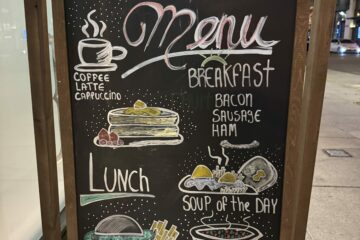 Menu
COFFEE
LATTE
CAPPUCCINO
BREAKFAST
BACON
SAUSAGE
HAM
LUNCH
SOUP OF THE DAY